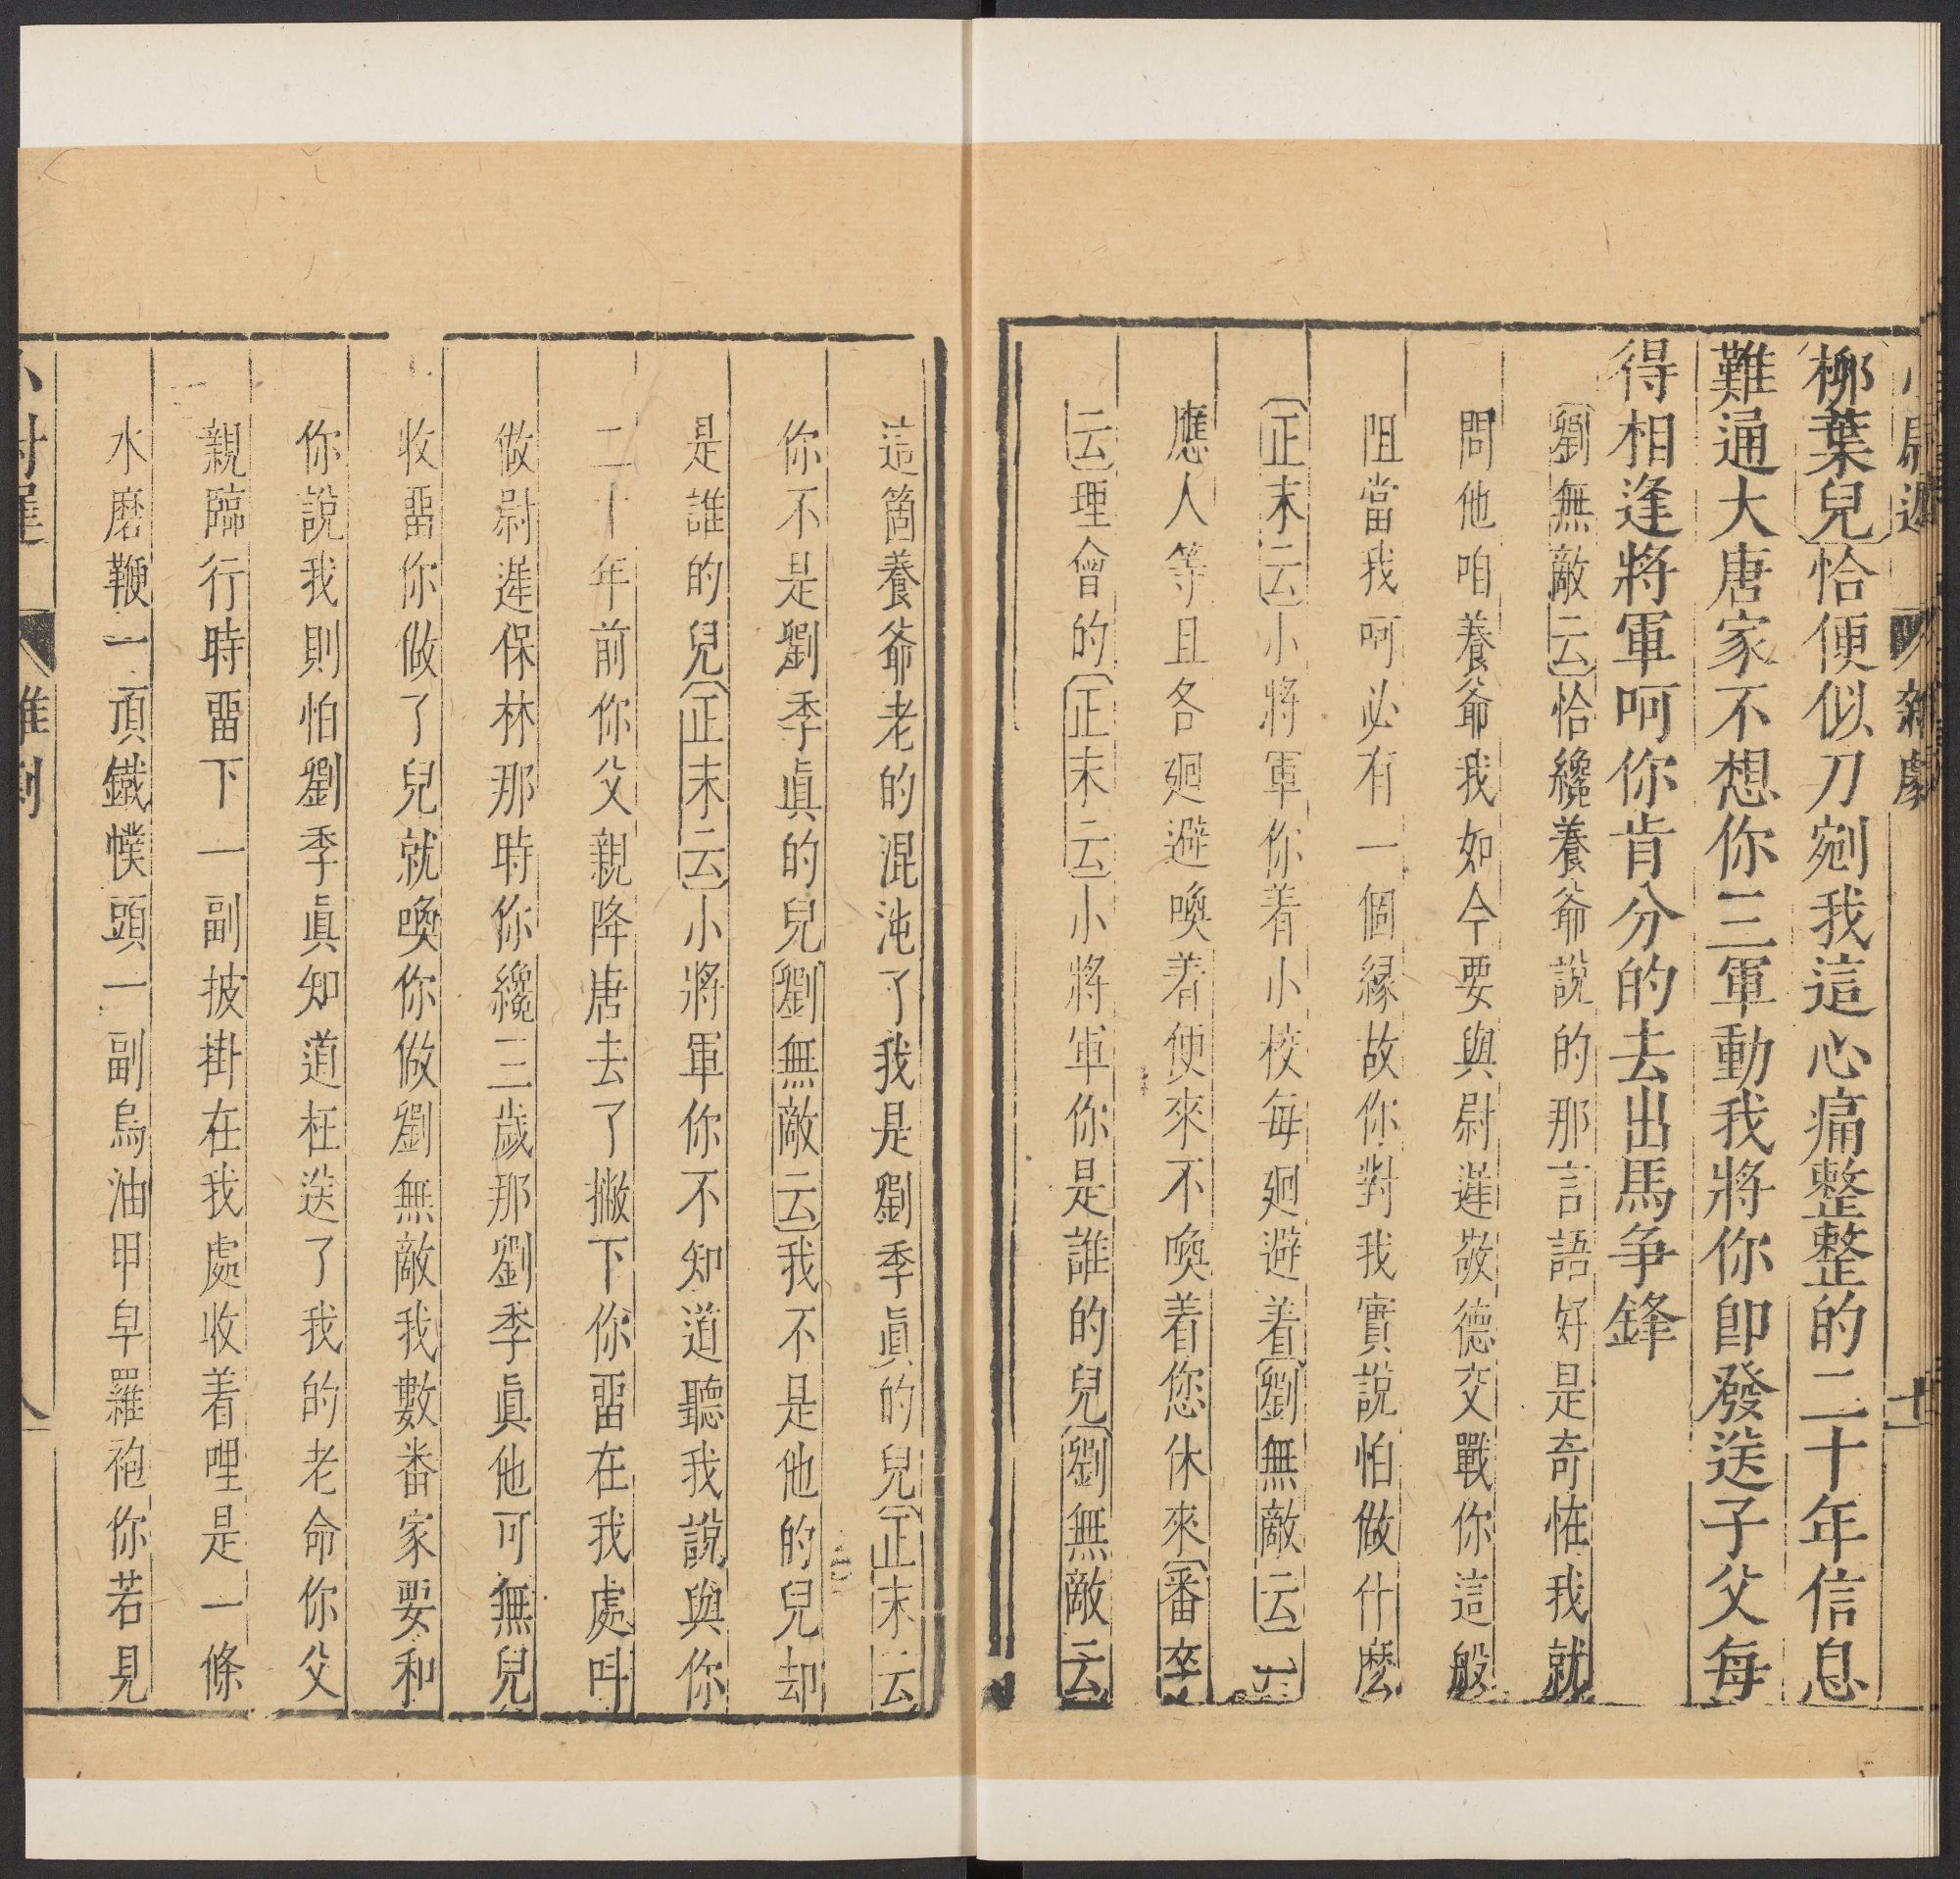 小尉遲 雜劇 十
柳葉兒恰便似刀剜我這心痛整整的二十年信息
難通大唐家不想你三軍動我將你卽發送子父每
得相逢將軍呵你肯分的去出馬争鋒
劉無敵云恰纔養爺說的那言語好是奇恠我就
問他咱養爺我如今要與尉遲敬德交戰你這般
阻當我呵必有一個緣故你對我實說怕做什麽
正末云小將軍你着小校每廻避着劉無敵云
應人等且各廻避喚着便來不喚着您休來番卒
云理會的正末云小將軍你是誰的兒劉無敵云
這箇養爺老的混沌了我是劉季眞的兒正末云
你不是劉季眞的兒劉無敵云我不是他的兒却
是誰的兒正末云小將軍你不知道聽我說與你
二十年前你父親降唐去了撇下你畱在我處呌
做尉遲保林那時你纔三歲那劉季眞他可無兒
收畱你做了兒就喚你做劉無敵我數番家要和
你說我則怕劉季眞知道枉送了我的老命你父
親臨行時畱下一副披掛在我處收着哩是一條
水磨鞭一頂鐵幞頭一副烏油甲皁羅袍你若見